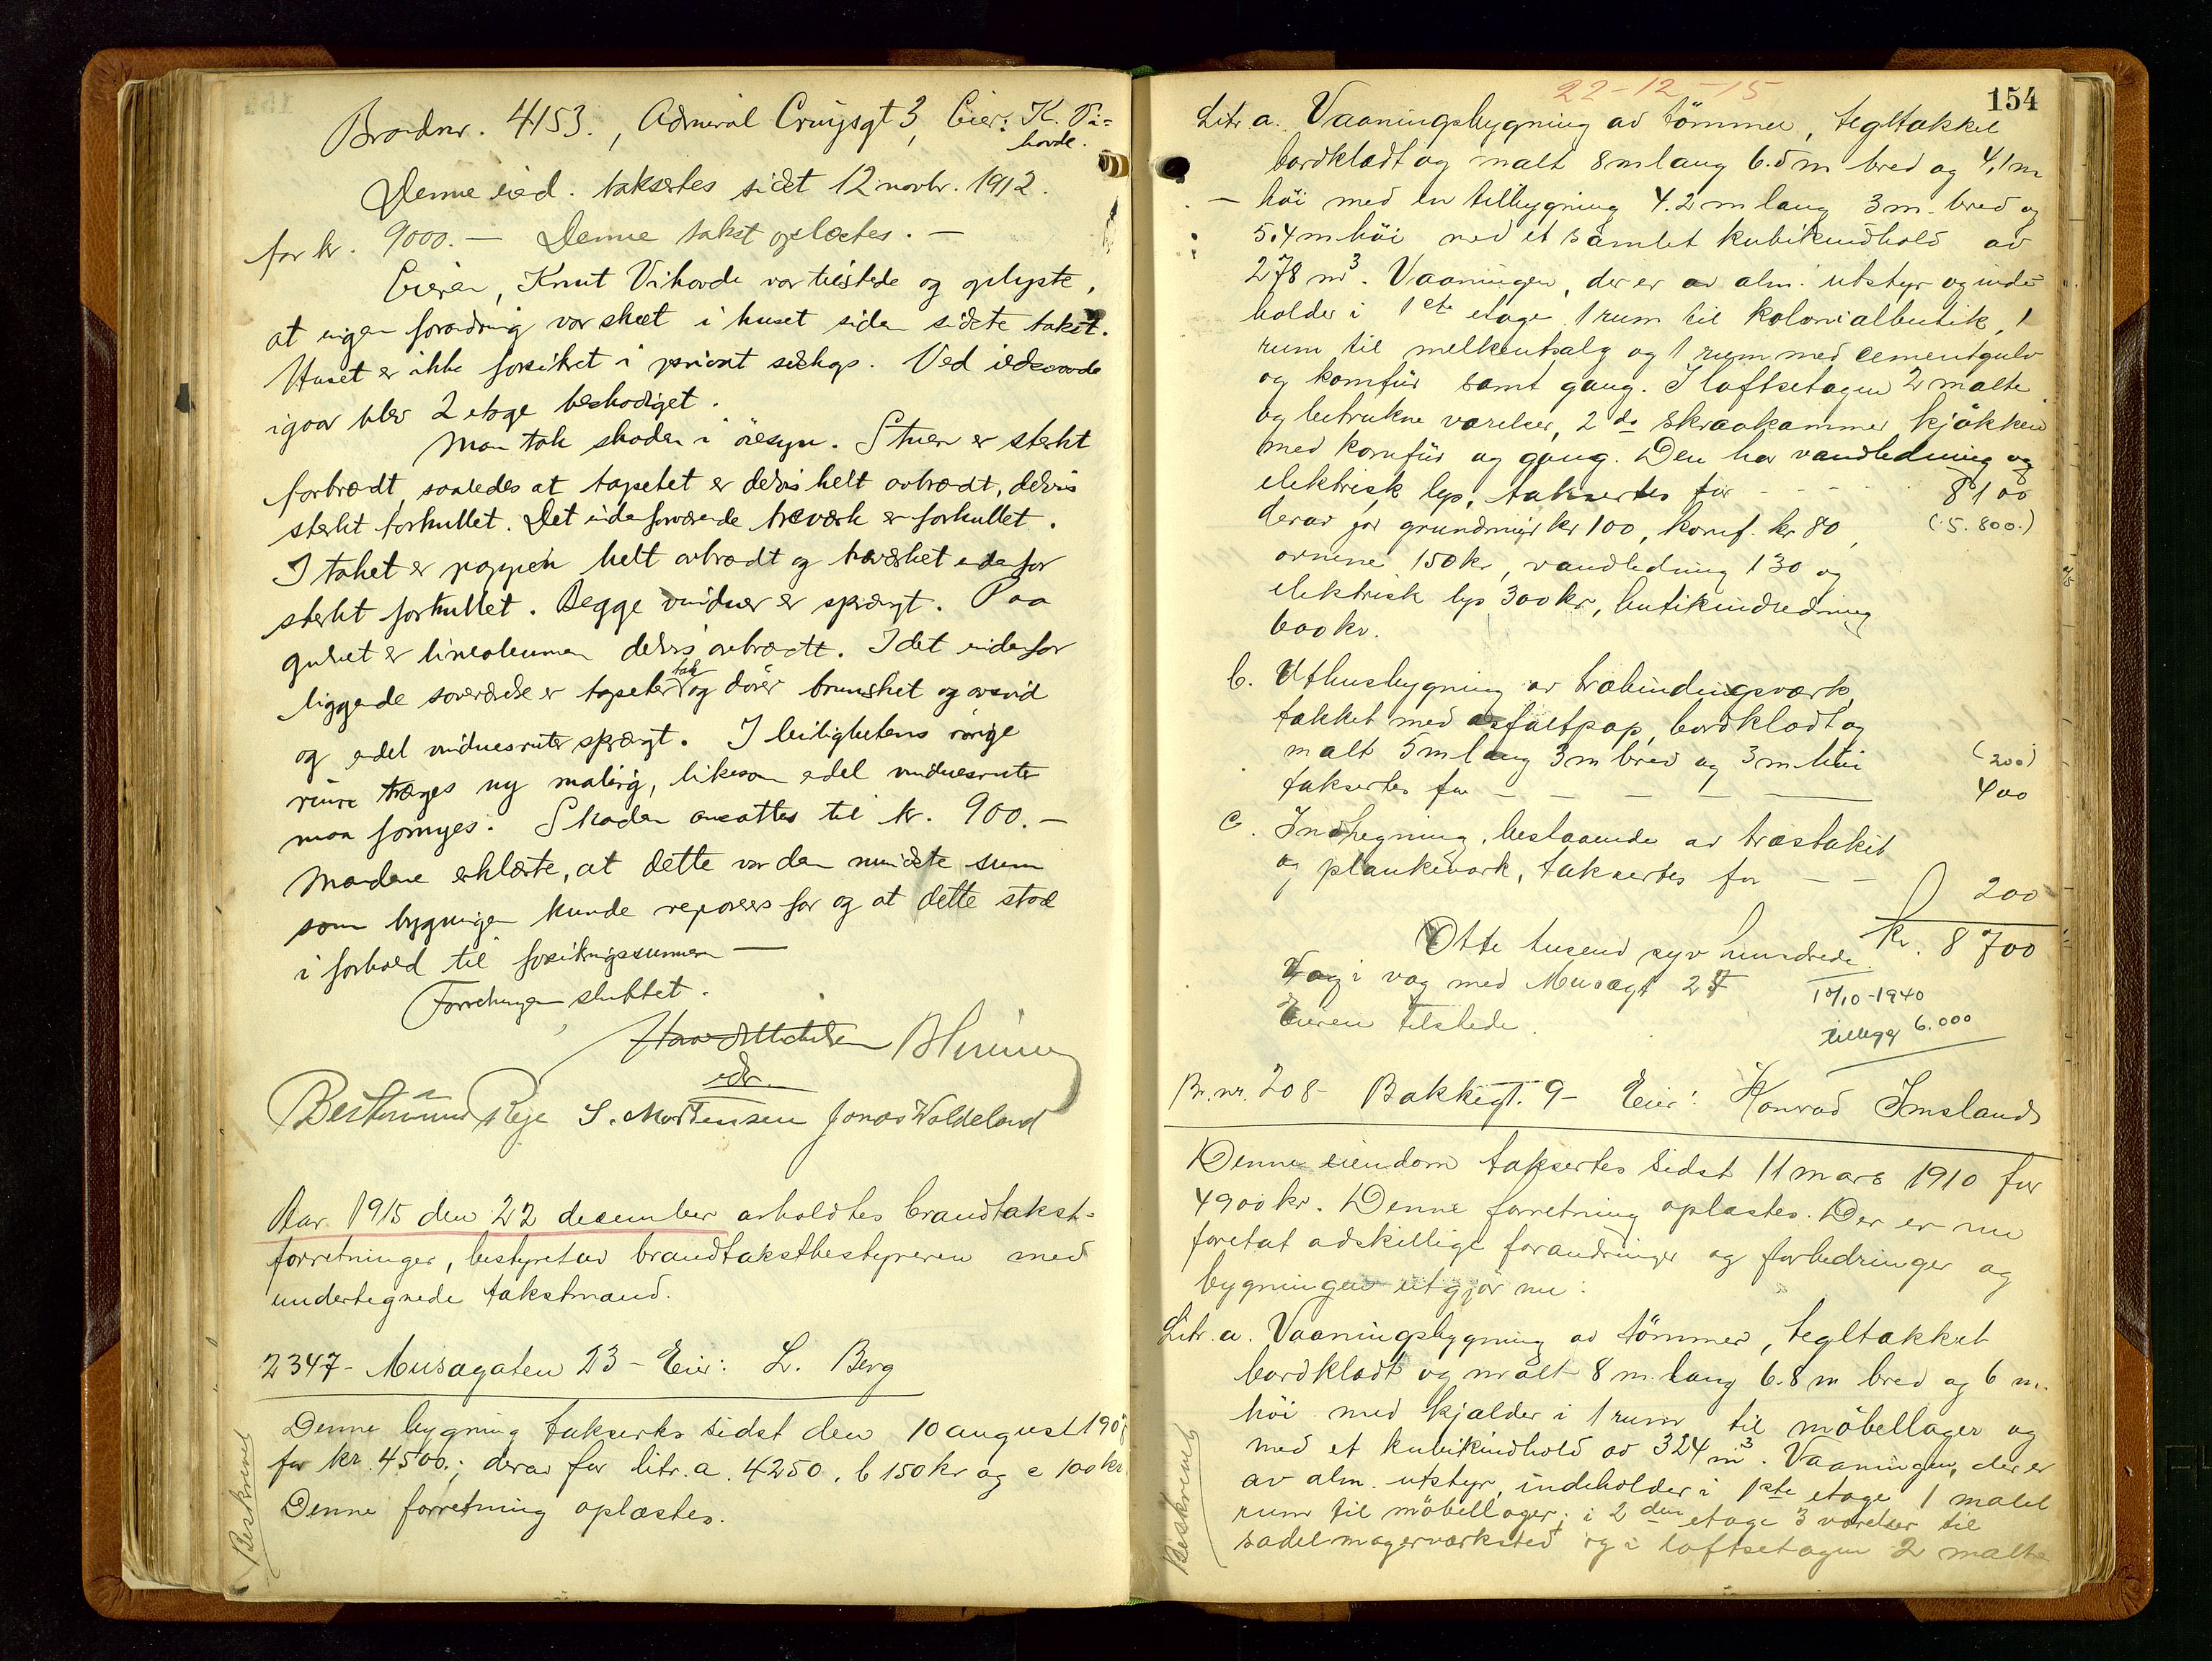 Brandnr. 4153., Admiral Cruysgt 3, Eier: K. Vi=
hovde.
Denne eied. taksertes sidst 12 novbr. 1912.
for kr. 9000.— Denne takst oplæstes.—
Eieren, Knut Vihovde var tilstede og oplyste,
at ingen forandring var skeet i huset siden sidste takst.
Huset er ikke forsikret i privat selskap. Ved ildsvaade
igaar blev 2 etage beskadiget.
Man tok skaden i öiesyn. Stuen er sterkt
forbrændt, saaledes at tapetet er delvis helt avbrændt, delvis
sterkt forkullet. Det indenforværende træverk er forkullet.
I taket er pappen helt avbrændt og træverket indenfor
sterkt forkullet. Begge vinduer er sprængt. Paa
gulvet er linoleumen delvis avbrændt. I det indenfor
liggende soveværelse er tapeter tak og dører brunsket og avsvid
og endel vinduesruter sprængt. I leilighetens øvrige
rum trænges ny maling, likesom endel vinduesruter
maa fornyes. Skaden ansattes til kr. 900.—
Mændene erklærte, at dette var den mindste sum
som bygningen kunde repareres for og at dette stod
i forhold til forsikringssummen —
Forretningen sluttet.
edr.
S. Mortensen Jonas Woldeland
Aar 1915 den 22 december avholdtes brandtakst=
forretninger, bestyret av brandtakstbestyreren med
undertegnede takstmænd.
2347- Musagaten 23 - Eier: L. Berg
Denne bygning taksertes sidst den 10 august 190
for kr. 4500.; derav for litr. a. 4250, b 150 kr og c 100 kr
Denne forretning oplæstes.
Beskrevet
22-12-15
154
Litr. a. Vaaningsbygning av tömmer, tegltækket
bordklædt og malt 8 m lang 6.5 m bred og 4,1 m
höi med en tilbygning 4.2 m lang 3 m. bred og
5.4 m höi med et samlet kubikindhold av
278 m³. Vaaningen, der er av alm. utstyr og inde-
holder i 1ste etage 1 rum til kolonialbutik, 1
rum til melkeutsalg og 1 rum med cementgulv
og komfür samt gang. I loftsetagen 2 malte
og betrukne værelser, 2 do skraakammer kjökken
med komfür og gang. Den har vandledning og
elektrisk lys, taksertes for - - - - 8100
derav for grundmur kr 100, komf. kr 80, (5.800.)
ovnene 150 kr, vandledning 130 og
elektrisk lys 300 kr, butikindredning
600 kr.
b. Uthusbygning av træbindingsværk,
tækket med asfaltpap, bordklædt og
malt 5 m lang 3 m bred og 3 m höi (200)
taksertes for — — — — — 400
c. Indhegning, bestaaende av træstakit
og plankeværk, taksertes for — — 200
Otte tusend syv hundrede. Kr. 8700
Væg i væg med Musægt 27
Eieren tilstede.
10/10-1940
tillegg 6.000
Br. nr. 208- Bakkegt. 9- Eier: Konrad Imsland
Denne eiendom taksertes sidst 11 mars 1910 for
4900 kr. Denne forretning oplæstes. Der er nu
foretat adskillige forandringer og forbedringer og
bygningen utgjör nu:
Litr. a. Vaaningsbygning av tömmer, tegltækket
bordklædt og malt 8 m. lang 6.8 m bred og 6 m.
höi med kjælder i 1 rum til möbellager og
med et kubikindhold av 324 m³. Vaaningen, der er
av alm. utstyr, indeholder i 1ste etage 1 malet
rum til möbellager; i 2den etage 3 værelser til
sadelmagerværksted og i loftsetagen 2 malte
Beskrevet